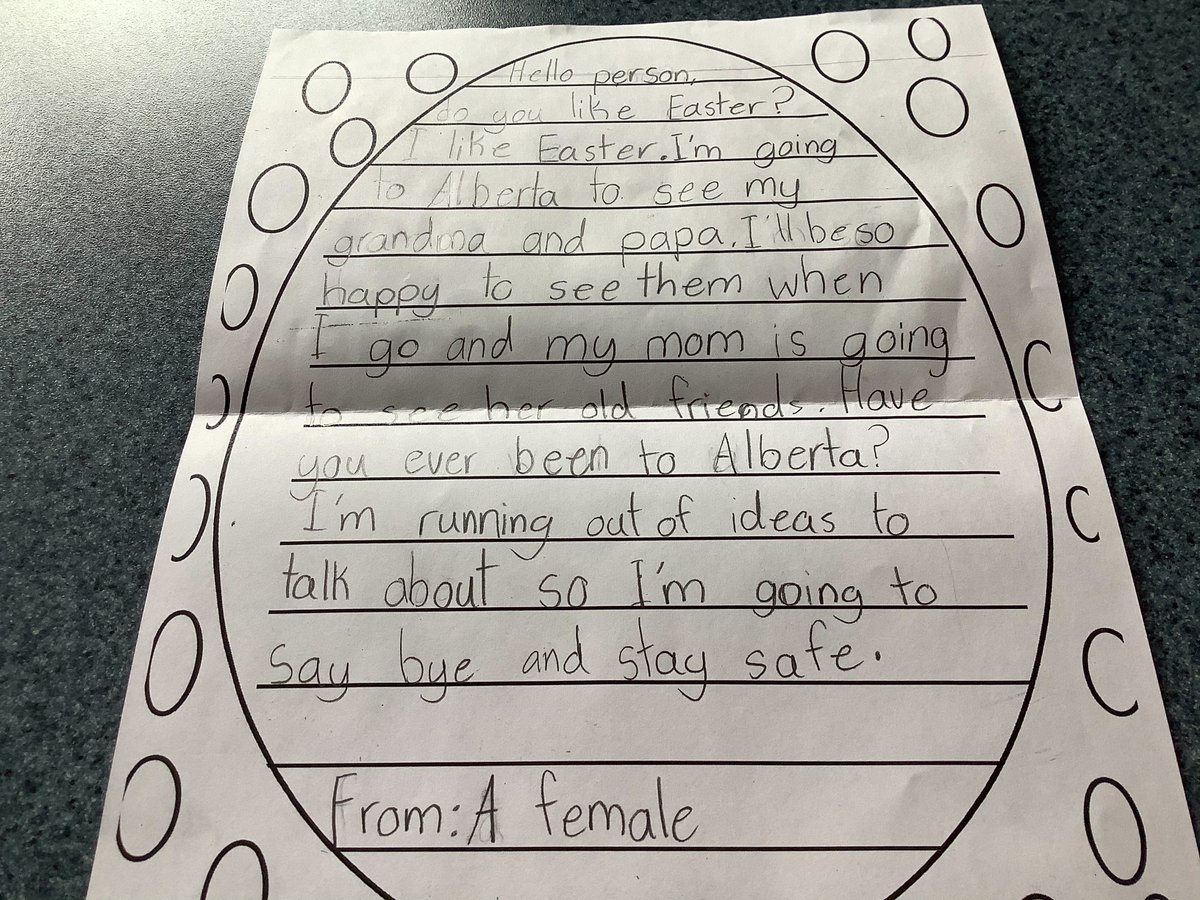 Hello person,
do you like Easter?
I like Easter. I'm going
to Alberta to see my
grandma and papa. I'll be so
happy to see them when
I go and my mom is going
to see her old friends. Have
you ever been to Alberta?
I'm running out of ideas to
talk about so I'm going to
say bye and stay safe.
From: A female